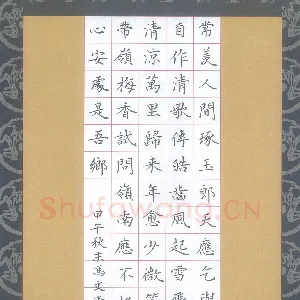 常羨人間琢玉郎天應乞與
自作清歌傳皓齒風起雪飛
清涼萬里歸来年愈少微笑
帶嶺梅香試問嶺南應不
心安處是吾鄉
甲午秋末馮文
Shufawang.CN